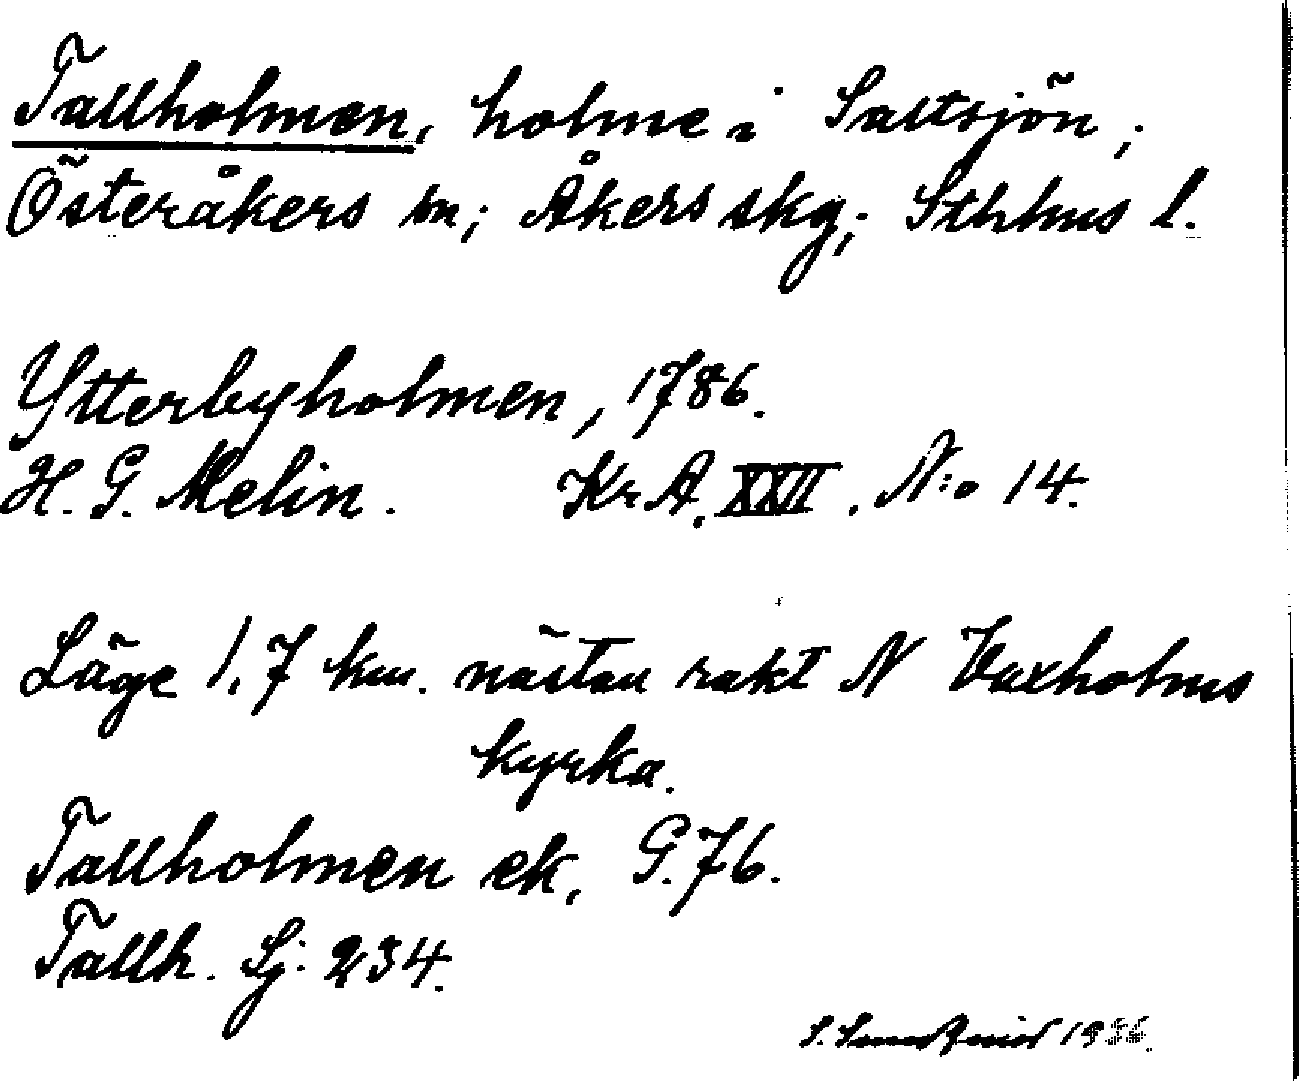 Tallholmen, holme i Saltsjön,
Österåkers sn; Åkers skg; Sthlms l.
Ytterbyholmen, 1786.
H. G. Melin. Kr. A. XXII. N:o 14.
Läge 1,7 km. nästan rakt N Vaxholms
kyrka.
Tallholmen ek, G. 76.
Tallh. Sj. 234.
1936.